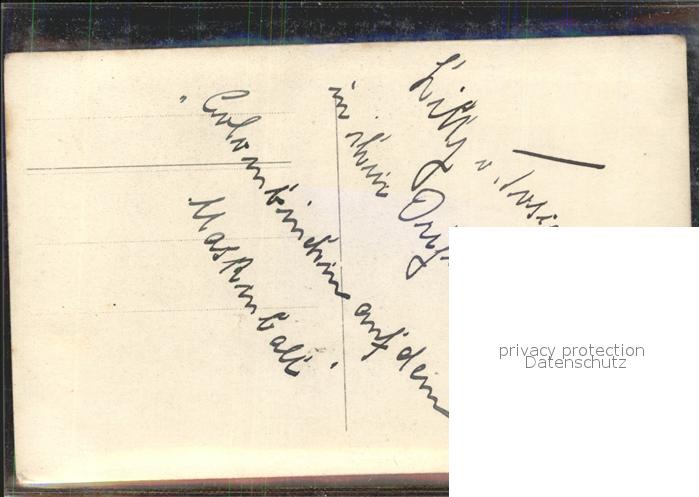 Litty u.
in ihrem
„Colombinchen auf dem
Maskenball"
privacy protection
Datenschutz